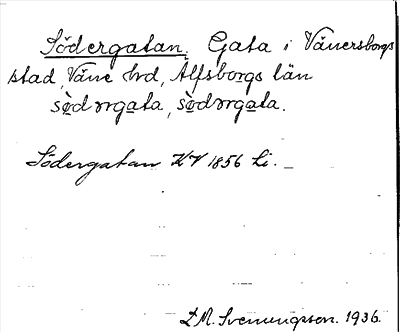 Södergatan. Gata i Vänersborgs
stad, Väne hd, Älfsborgs län
sọ̈dǝrga̱ta, sọ̈dǝrga̱ta.
Södergatan KV 1856 Li.
D. M. Svenungsson. 1936.